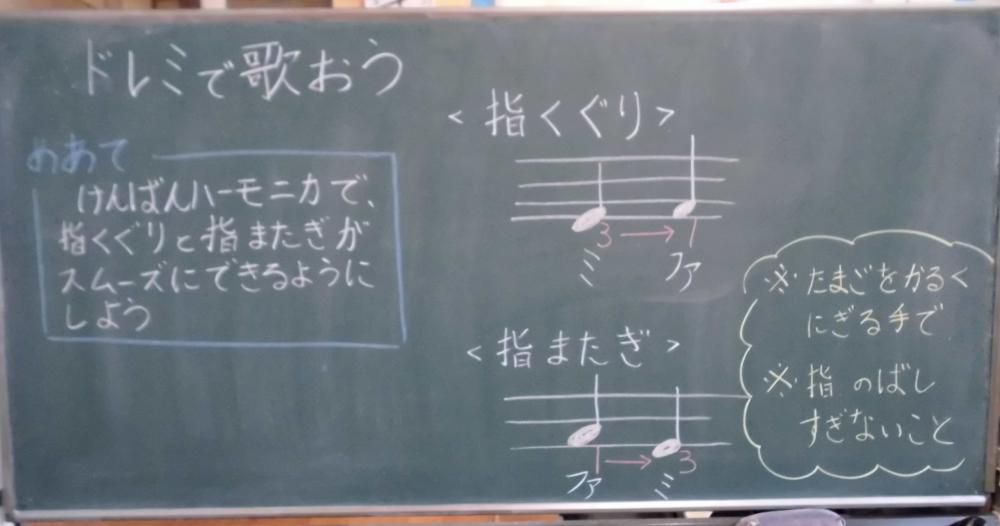 ドレミで歌おう
めあて
けんばんハーモニカで、
指くぐりと指またぎが
スムーズにできるように
しよう
<指くぐり>
3→1
ミ ファ
<指またぎ>
1→3
ファ ミ
※たまごをかるく
にぎる手で
※指のばし
すぎないこと